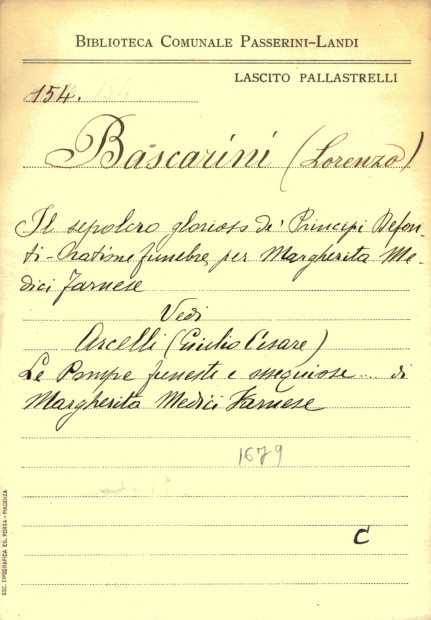 BIBLIOTECA COMUNALE PASSERINI-LANDI
LASCITO PALLASTRELLI
154.
Bascarini (Lorenzo)
Il sepolcro glorioso de' Principi Defon-
ti - Oratione funebre per Margherita Me-
dici Farnese
Vedi
Arcelli (Giulio Cesare)
Le Pompe funeste e ossequiose... di
Margherita Medici Farnese
1679
C
SOC. TIPOGRAFICA ED. PORTA - PIACENZA